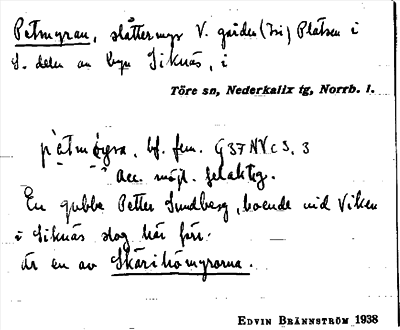 Petmyran, slåttermyr V. gården (Tri) Platsen i
S. delen av byn Siknäs, i
Töre sn, Nederkalix tg, Norrb. l.
bf. fem. G 37 NV c 3. 3
Acc. möjl. felaktig.
En gubbe Petter Sundberg, boende vid Viken
i Siknäs slog här förr.
Är en av Skärihömyrorna.
EDVIN BRÄNNSTRÖM 1938